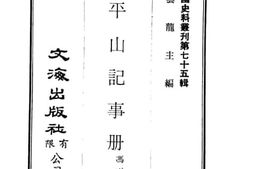 國史料叢刊第七十五輯
雲龍主編
平山記事册
文海出版社有限公